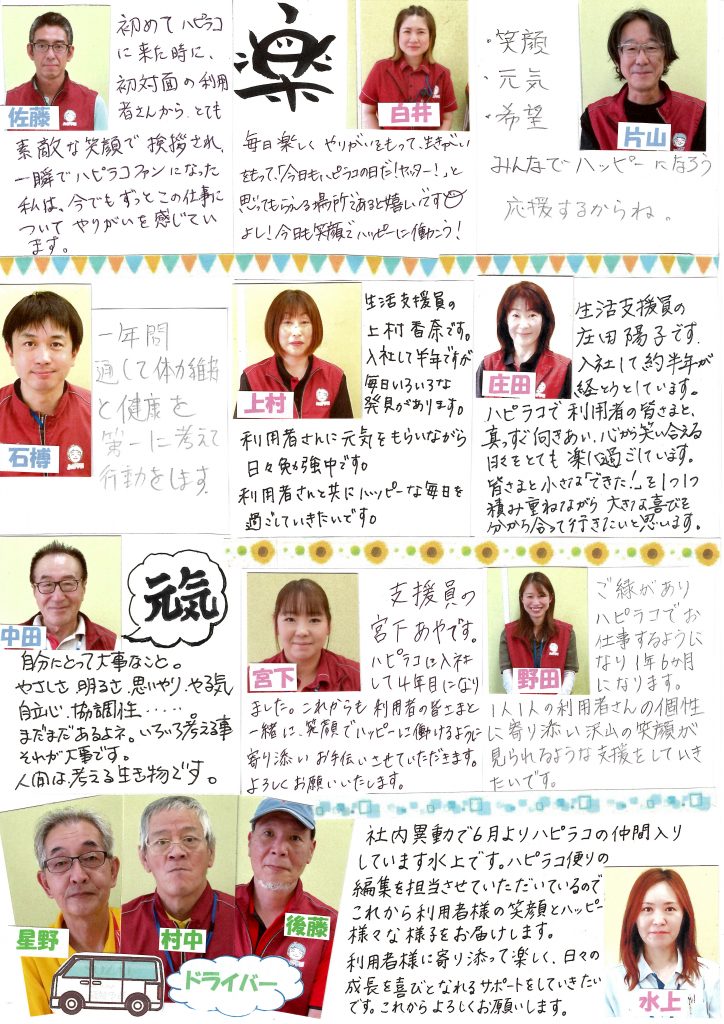 初めて ハピラコ
に 来た時に、
初対面 の利用
者さんから、とても
佐藤
素敵な笑顔で 挨拶され、
一瞬で ハピラコファンになった
私は、今でもずっとこの仕事に
ついて やりがいを 感じてい
ます。
楽
白井
毎日楽しく やりがいをもって、生きがい
をもって、「今日もハピラコの日だ！ヤッター！」と
思ってもらえる場所であると嬉しいです
よし！今日も笑顔でハッピーに働こう！
・笑顔
・元気
・希望
片山
みんなで ハッピーになろう
応援するからね。
石榑
一年間
通して体力維持
と健康を
第一に考えて
行動をします。
上村
生活支援員の
上村 香奈です。
入社して半年ですが
毎日いろいろな
発見があります。
利用者さんに 元気をもらいながら
日々勉強中です。
利用者さんと共に ハッピーな毎日を
過ごしていきたいです。
庄田
生活支援員の
庄田 陽子です。
入社して約半年が
経とうとしています。
ハピラコで利用者の皆さまと、
真っすぐ向きあい、心から笑い合える
日々をとても 楽しく過ごしています。
皆さまと小さな「できた！」を1つ1つ
積み重ねながら 大きな喜びを
分かち合って行きたいと思います。
中田
元気
自分にとって大事なこと。
やさしさ、明るさ、思いやり、やる気
自立心、協調性・・・・・
まだまだあるよネ。いろいろ考える事
それが大事です。
人間は、考える生き物です。
宮下
支援員の
宮下あやです。
ハピラコに入社
して4年目になり
ました。これからも 利用者の皆さまと
一緒に、笑顔でハッピーに働けるように
寄り添い お手伝いさせていただきます。
よろしくお願いいたします。
野田
ご縁があり
ハピラコでお
仕事するように
なり1年6か月
になります。
1人1人の利用者さんの個性
に寄り添い沢山の笑顔が
見られるような支援をしていき
たいです。
星野
村中
後藤
ドライバー
社内異動で6月よりハピラコの仲間入り
しています水上です。ハピラコ便りの
編集を担当させていただいているので
これから利用者様の笑顔とハッピー
様々な様子をお届けします。
利用者様に寄り添って楽しく、日々の
成長を喜びとなれるサポートをしていきたい
です。これからよろしくお願いします。
水上